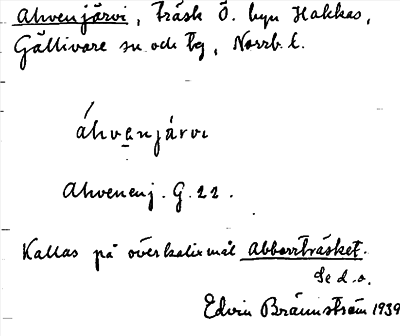 Ahvenjärvi, träsk Ö. byn Hakkas,
Gällivare sn och tg, Norrb. l.
áhvanjárvi
Ahvenenj. G. 22.
Kallas på överkalixmål Abborrträsket.
Se d. o.
Edvin Brännström 1939